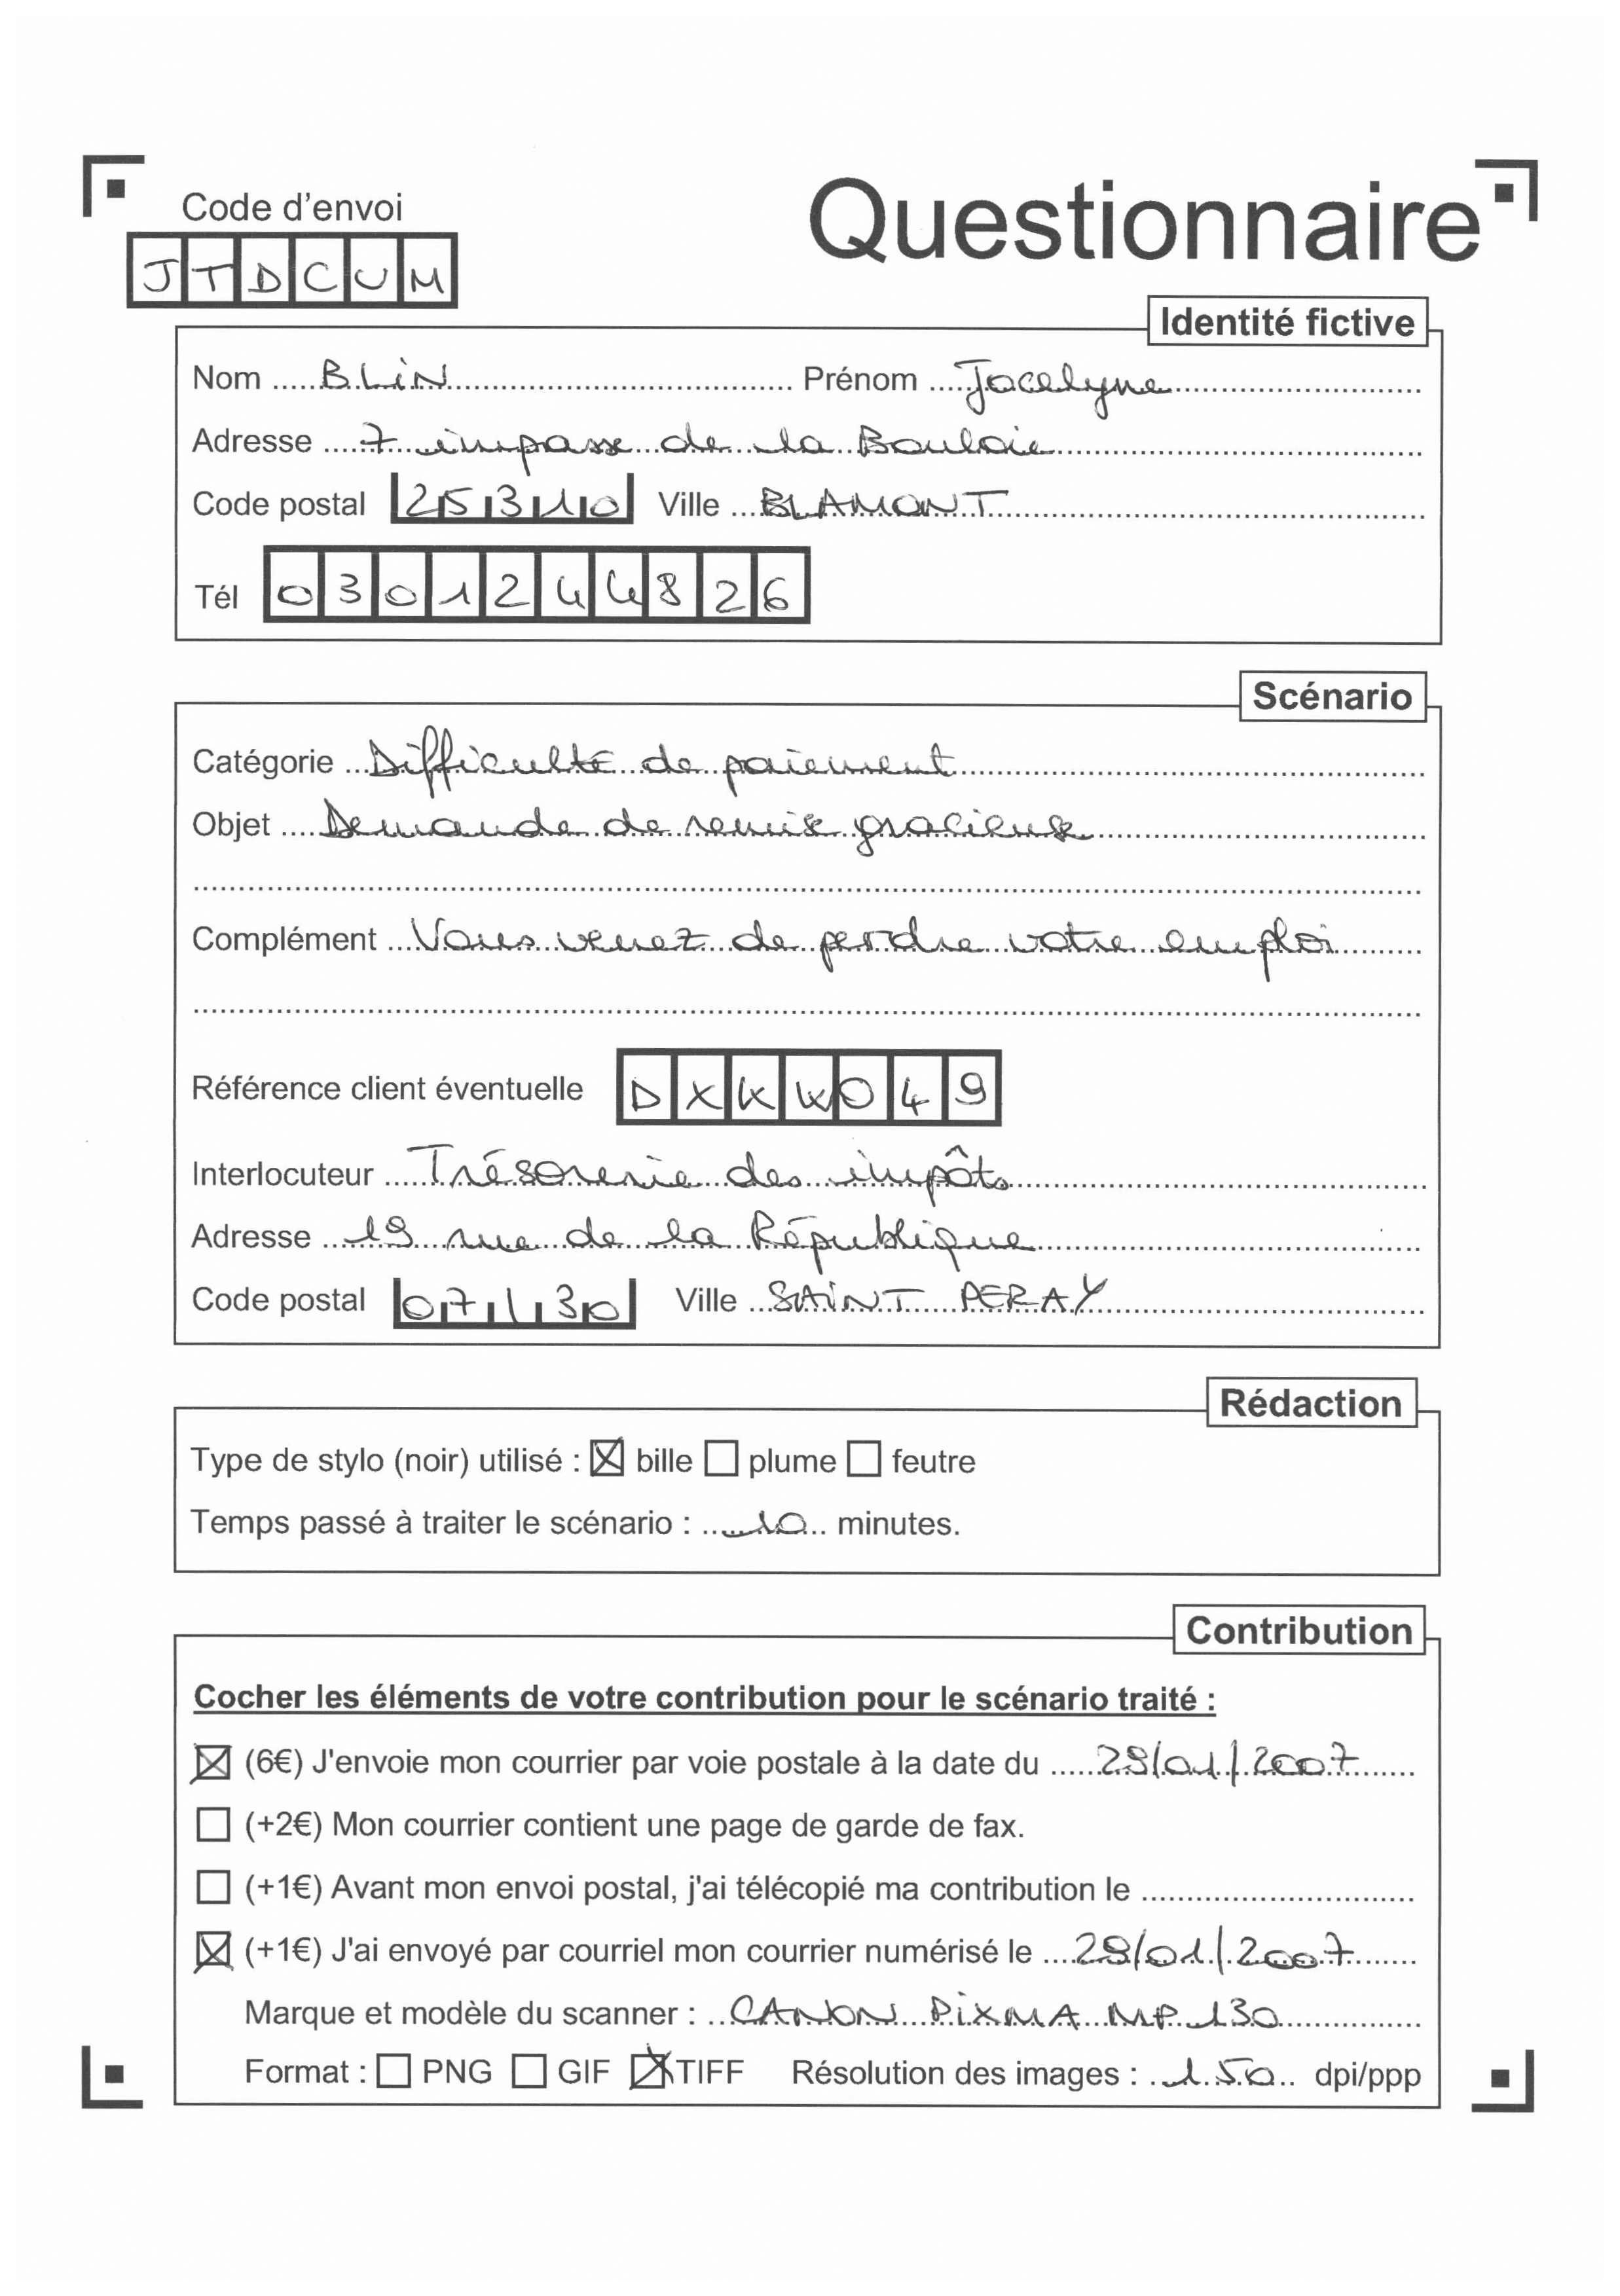 Code d'envoi
Questionnaire
JTDCUM
Identité fictive
Nom BLiN Prénom Jocelyne
Adresse 7 impasse de la Bouloie
Code postal 25310 Ville BLAMONT
Tél 0301244826
Scénario
Catégorie Difficulté de paiement
Objet Demande de remise gracieuse
Complément Vous venez de perdre votre emploi
Référence client éventuelle DXKW049
Interlocuteur Trésorerie des impôts
Adresse 19 rue de la République
Code postal 07130 Ville SAiNT PERAY
Rédaction
Type de stylo (noir) utilisé : ☒ bille ☐ plume ☐ feutre
Temps passé à traiter le scénario : 10 minutes.
Contribution
Cocher les éléments de votre contribution pour le scénario traité :
☒ (6€) J'envoie mon courrier par voie postale à la date du 29/01/2007
☐ (+2€) Mon courrier contient une page de garde de fax.
☐ (+1€) Avant mon envoi postal, j'ai télécopié ma contribution le
☒ (+1€) J'ai envoyé par courriel mon courrier numérisé le 29/01/2007
Marque et modèle du scanner : CANON PiXMA MP 130
Format : ☐ PNG ☐ GIF ☒ TIFF Résolution des images : 150 dpi/ppp